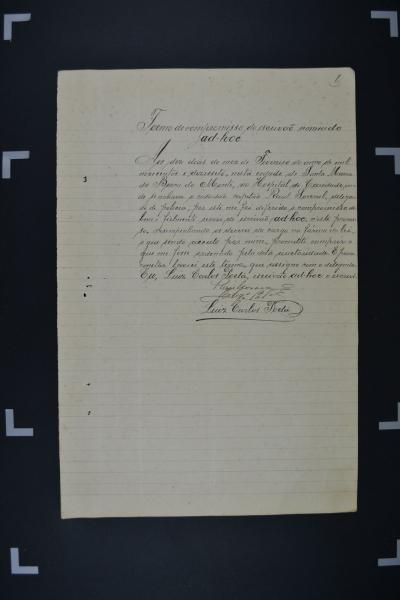 1
Termo de compromisso de escrivão nomeado
ad-hoc
Aos dez dias do mez de Fevereiro do anno de mil
novecentos e dezesete, nesta cidade de Santa Maria
da Bocca do Monte, no Hospital de Caridade, on-
de se achava o cidadão capitão Raul Soveral, delega-
do de policia, por elle me foi deferido o compromisso de
bem e fielmente servir de escrivão ad-hoc, neste proces-
so, desempenhando os deveres do cargo na forma da lei,
o que sendo acceito por mim, prometti cumprir o
que me fora ordenado pela dita auctoridade. E para
constar lavrei este termo, que assigno com o delegado.
Eu, Luiz Carlos, escrivão ad-hoc o escrevi.
Luiz Carlos